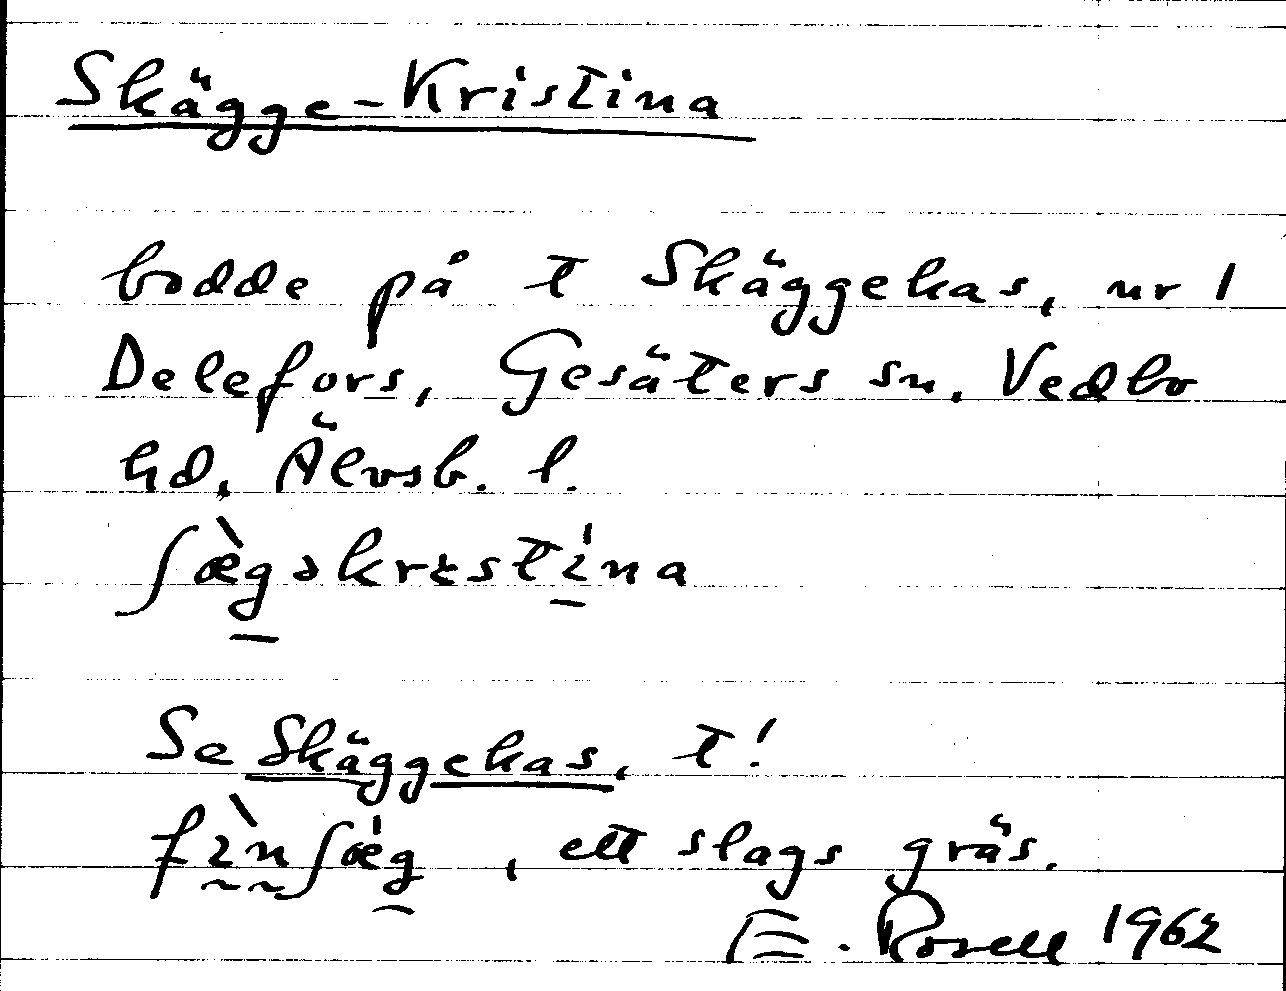 Skägge-Kristina
bodde på t Skäggekas, nr 1
Delefors, Gesäters sn. Vedbo
hd, Älvsb. l.
ʃæ̀gəkrɪstína
Se Skäggekas, t!
fɪ̀nʃæ̀g, ett slags gräs.
E. Rosell 1962